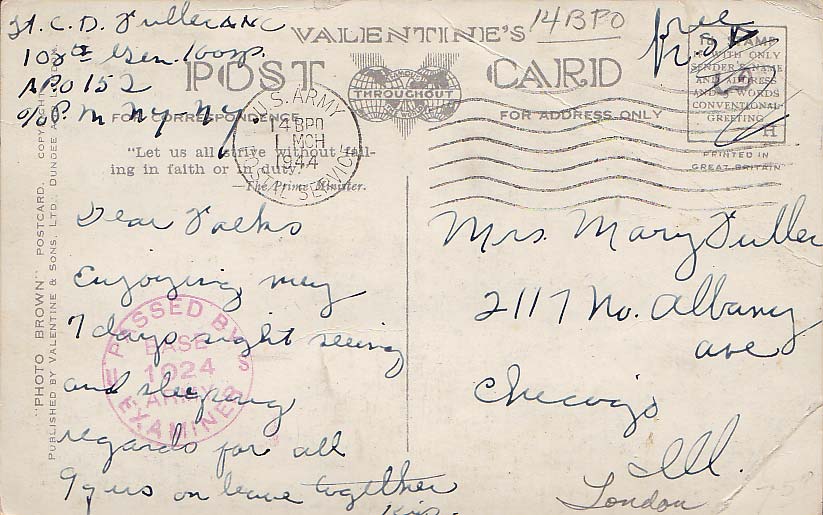 Lt. C. D. Fuller ANC
108th Gen. Hosp.
APO 152
c/o P. M. N.Y. N.Y.
14 BPO
free
VALENTINE'S
POST CARD
FAMOUS
THROUGHOUT
THE WORLD
FOR CORRESPONDENCE
FOR ADDRESS ONLY
"Let us all strive without fail-
ing in faith or in duty."
—The Prime Minister.
U.S. ARMY
14 BPO
1 MCH
1944
POSTAL SERVICE
NO STAMP
WITH ONLY
SENDER'S NAME
AND ADDRESS
AND 5 WORDS
CONVENTIONAL
GREETING
H
PRINTED IN
GREAT BRITAIN
"PHOTO BROWN" POSTCARD. COPYRIGHT
PUBLISHED BY VALENTINE & SONS, LTD., DUNDEE AND
Dear Folks
Enjoying my
7 days sight seeing
and sleeping
regards for all
9 of us on leave together
PASSED BY
BASE
1024
ARMY
EXAMINER
U S
Mrs. Mary Fuller
2117 No. Albany
ave
Chicago
Ill.
London
75